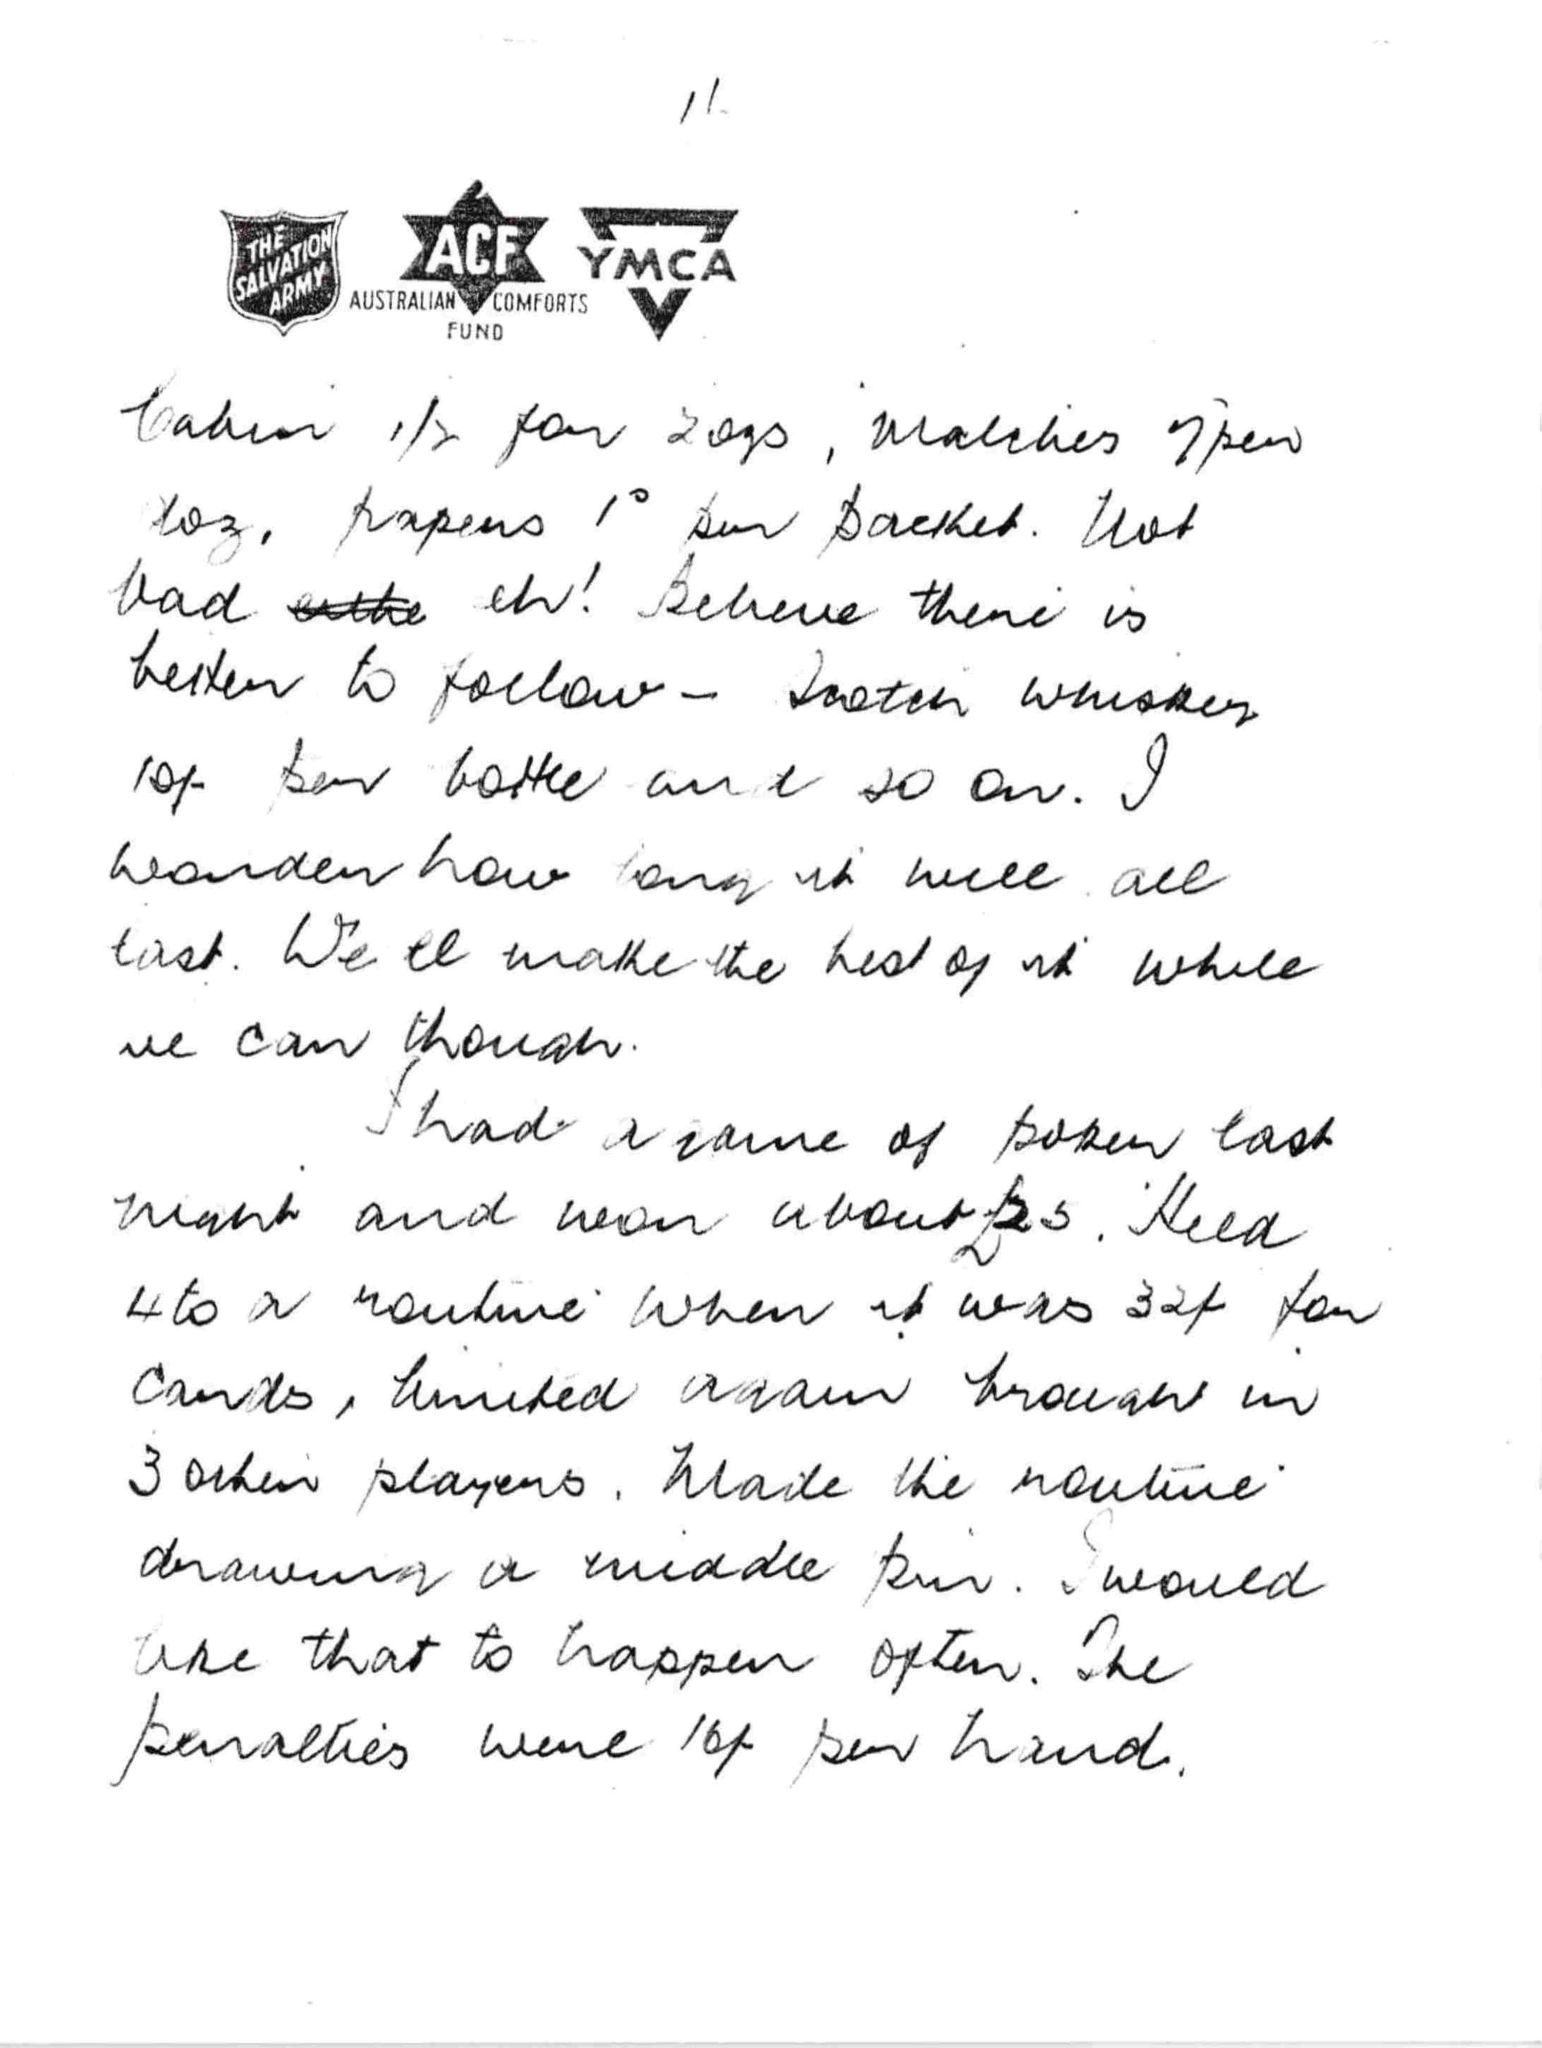 11.
THE
SALVATION
ARMY
ACF
AUSTRALIAN COMFORTS
FUND
YMCA
1/2 for 2ozs, Matches 7 per
doz, papers 1ᴰ per packet. Not
bad eh! Believe there is
better to follow – Scotch whiskey
10/- per bottle and so on. I
wonder how long it will all
last. We ll make the best of it while
we can though.
I had a game of poker last
night and won about £25. Held
4 to a routine when it was 32/- for
cards, limited again brought in
3 other players. Made the routine
drawing a middle pin. I would
like that to happen often. The
penalties were 16/- per hand.